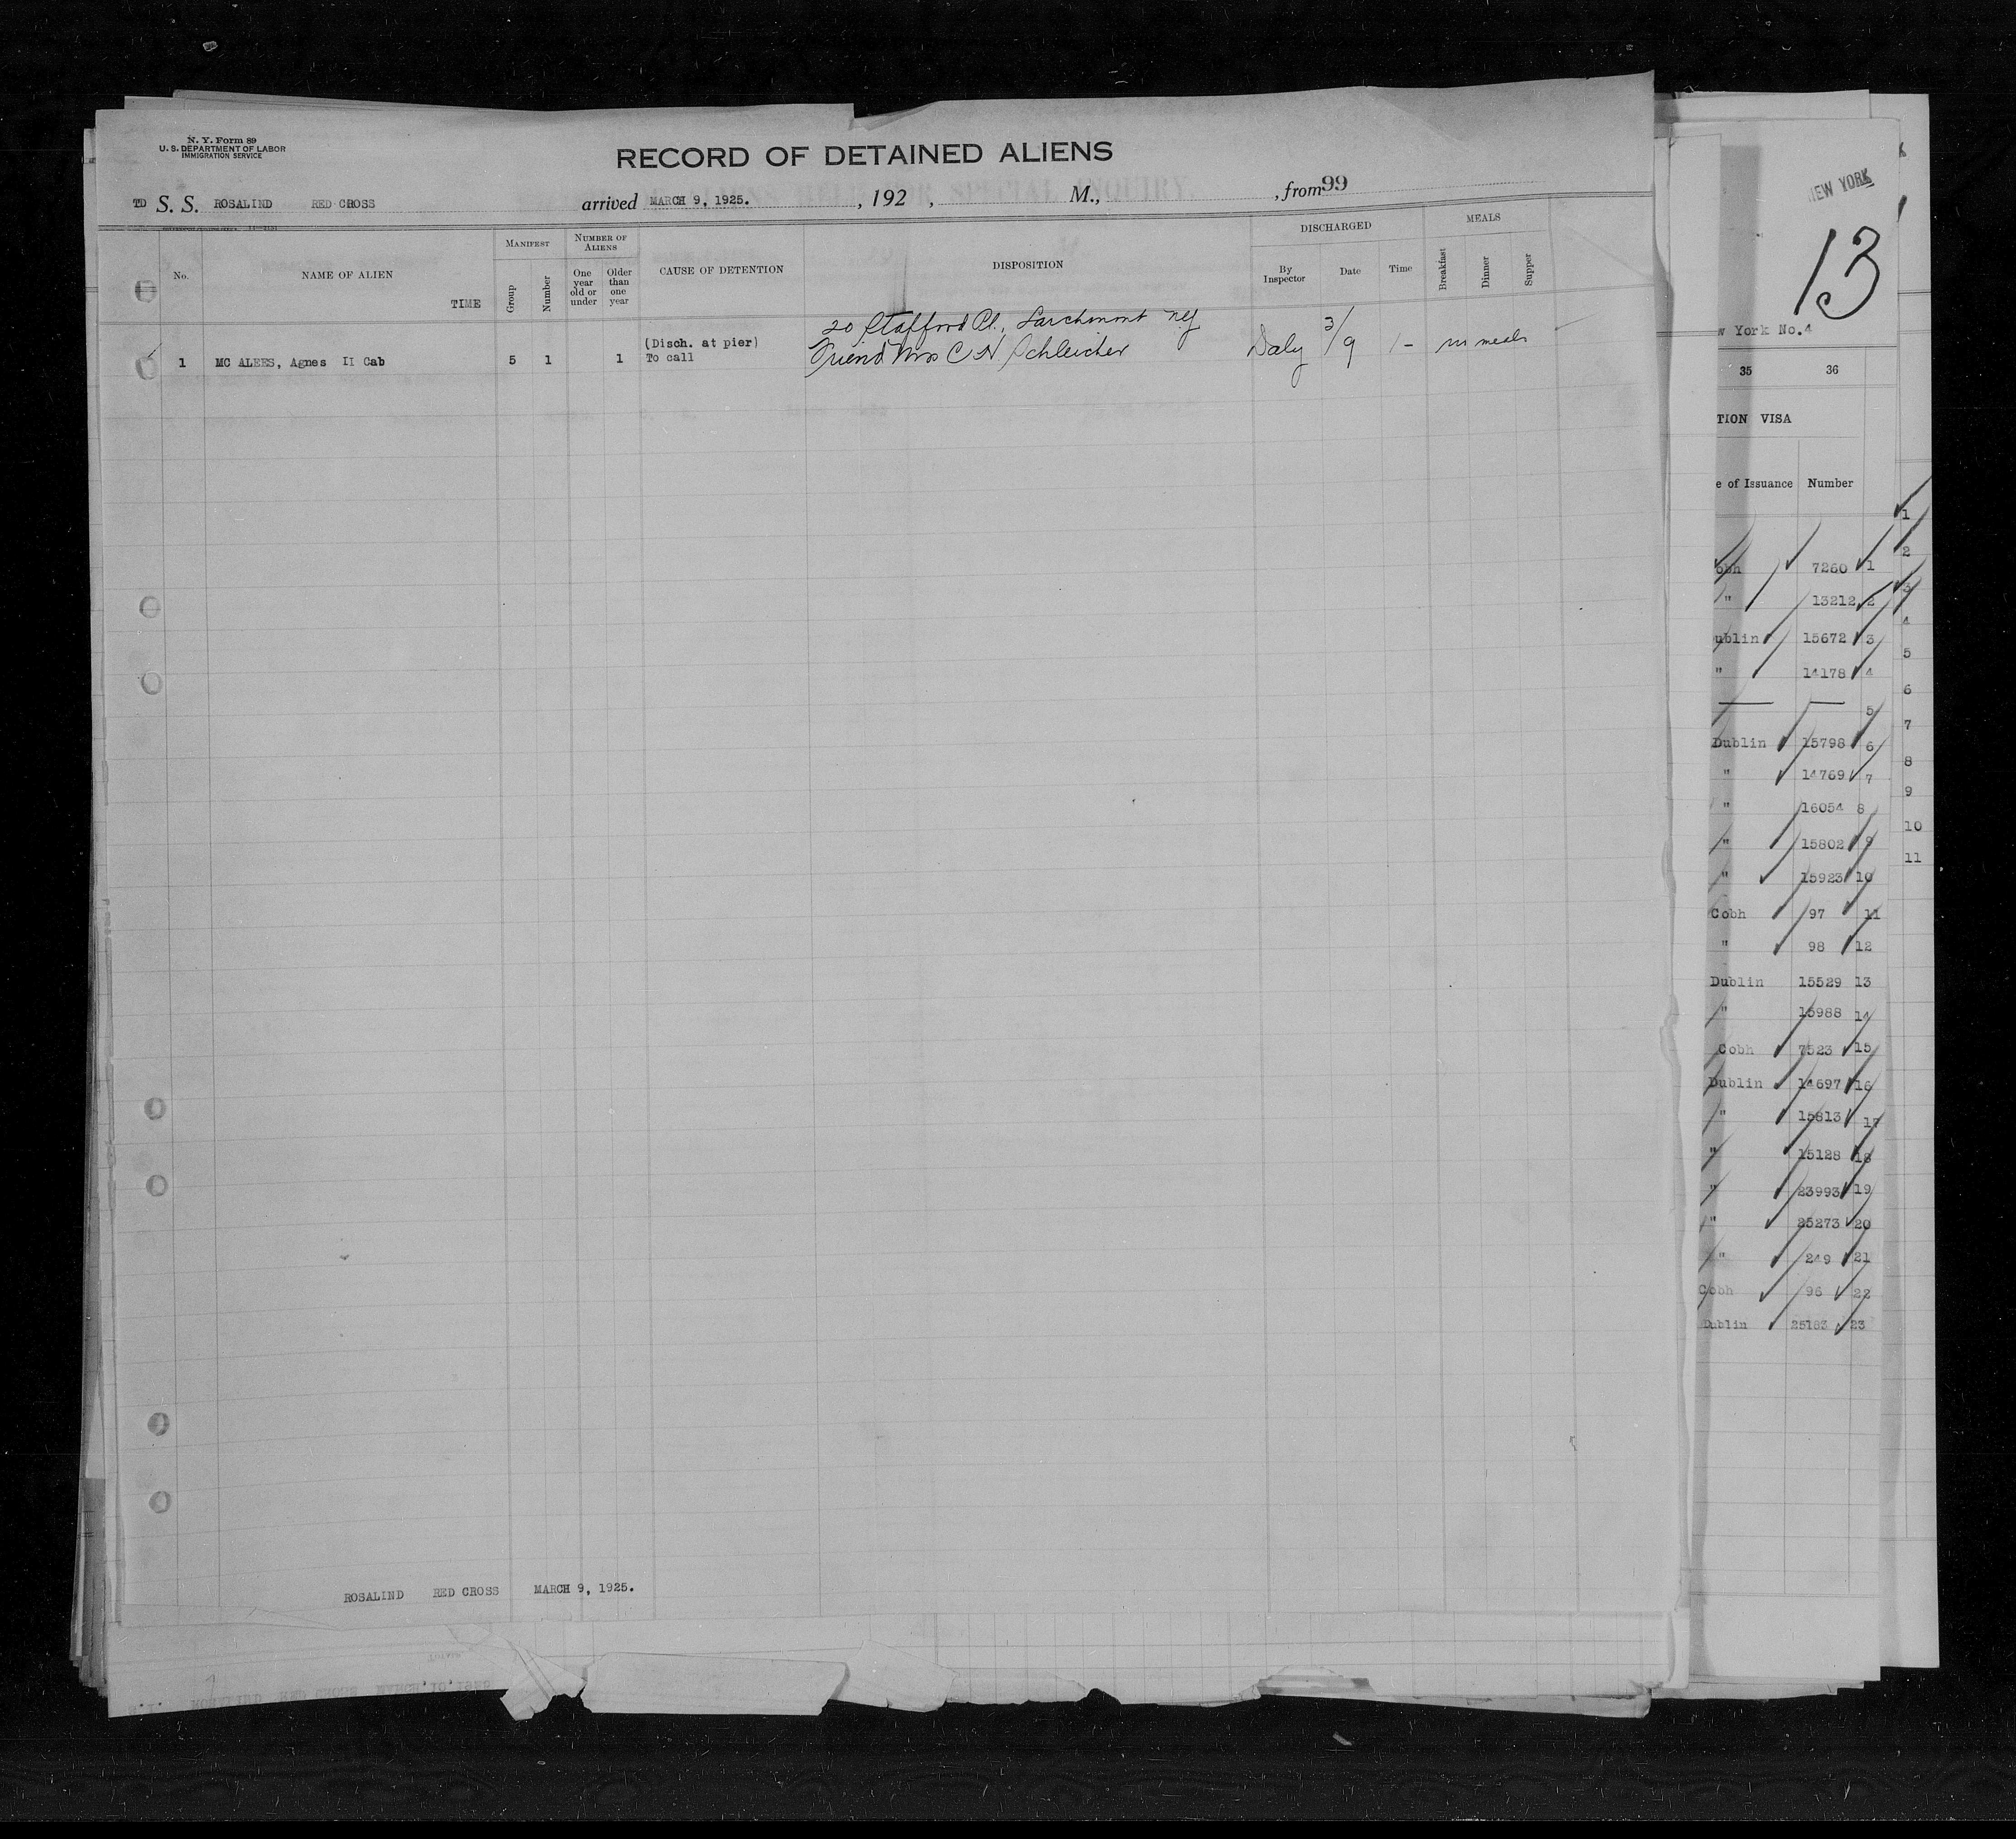 N. Y. Form 89
U. S. DEPARTMENT OF LABOR
IMMIGRATION SERVICE
RECORD OF DETAINED ALIENS
TD S. S. ROSALIND RED CROSS arrived MARCH 9, 1925. , 192 , M., , from 99
No.
NAME OF ALIEN
TIME
MANIFEST
Group
Number
NUMBER OF ALIENS
One year old or under
Older than one year
CAUSE OF DETENTION
DISPOSITION
DISCHARGED
By Inspector
Date
Time
MEALS
Breakfast
Dinner
Supper
20 Stafford Pl., Larchmont NY
(Disch. at pier)
1 MC ALEES, Agnes II Cab 5 1 1 To call Friend Mrs C N Schleicher Daly 3/9 1- no meals
ROSALIND RED CROSS MARCH 9, 1925.
NEW YORK
13
w York No. 4
35 36
TION VISA
e of Issuance Number
obh 7260 1
" 13212 2
ublin 15672 3
" 14178 4
— — 5
Dublin 15798 6
" 14769 7
" 16054 8
" 15802 9
" 15923 10
Cobh 97 11
" 98 12
Dublin 15529 13
" 15988 14
Cobh 7523 15
Dublin 14697 16
" 15813 17
" 15128 18
" 23993 19
" 25273 20
" 249 21
Cobh 96 22
Dublin 25183 23
1
2
3
4
5
6
7
8
9
10
11